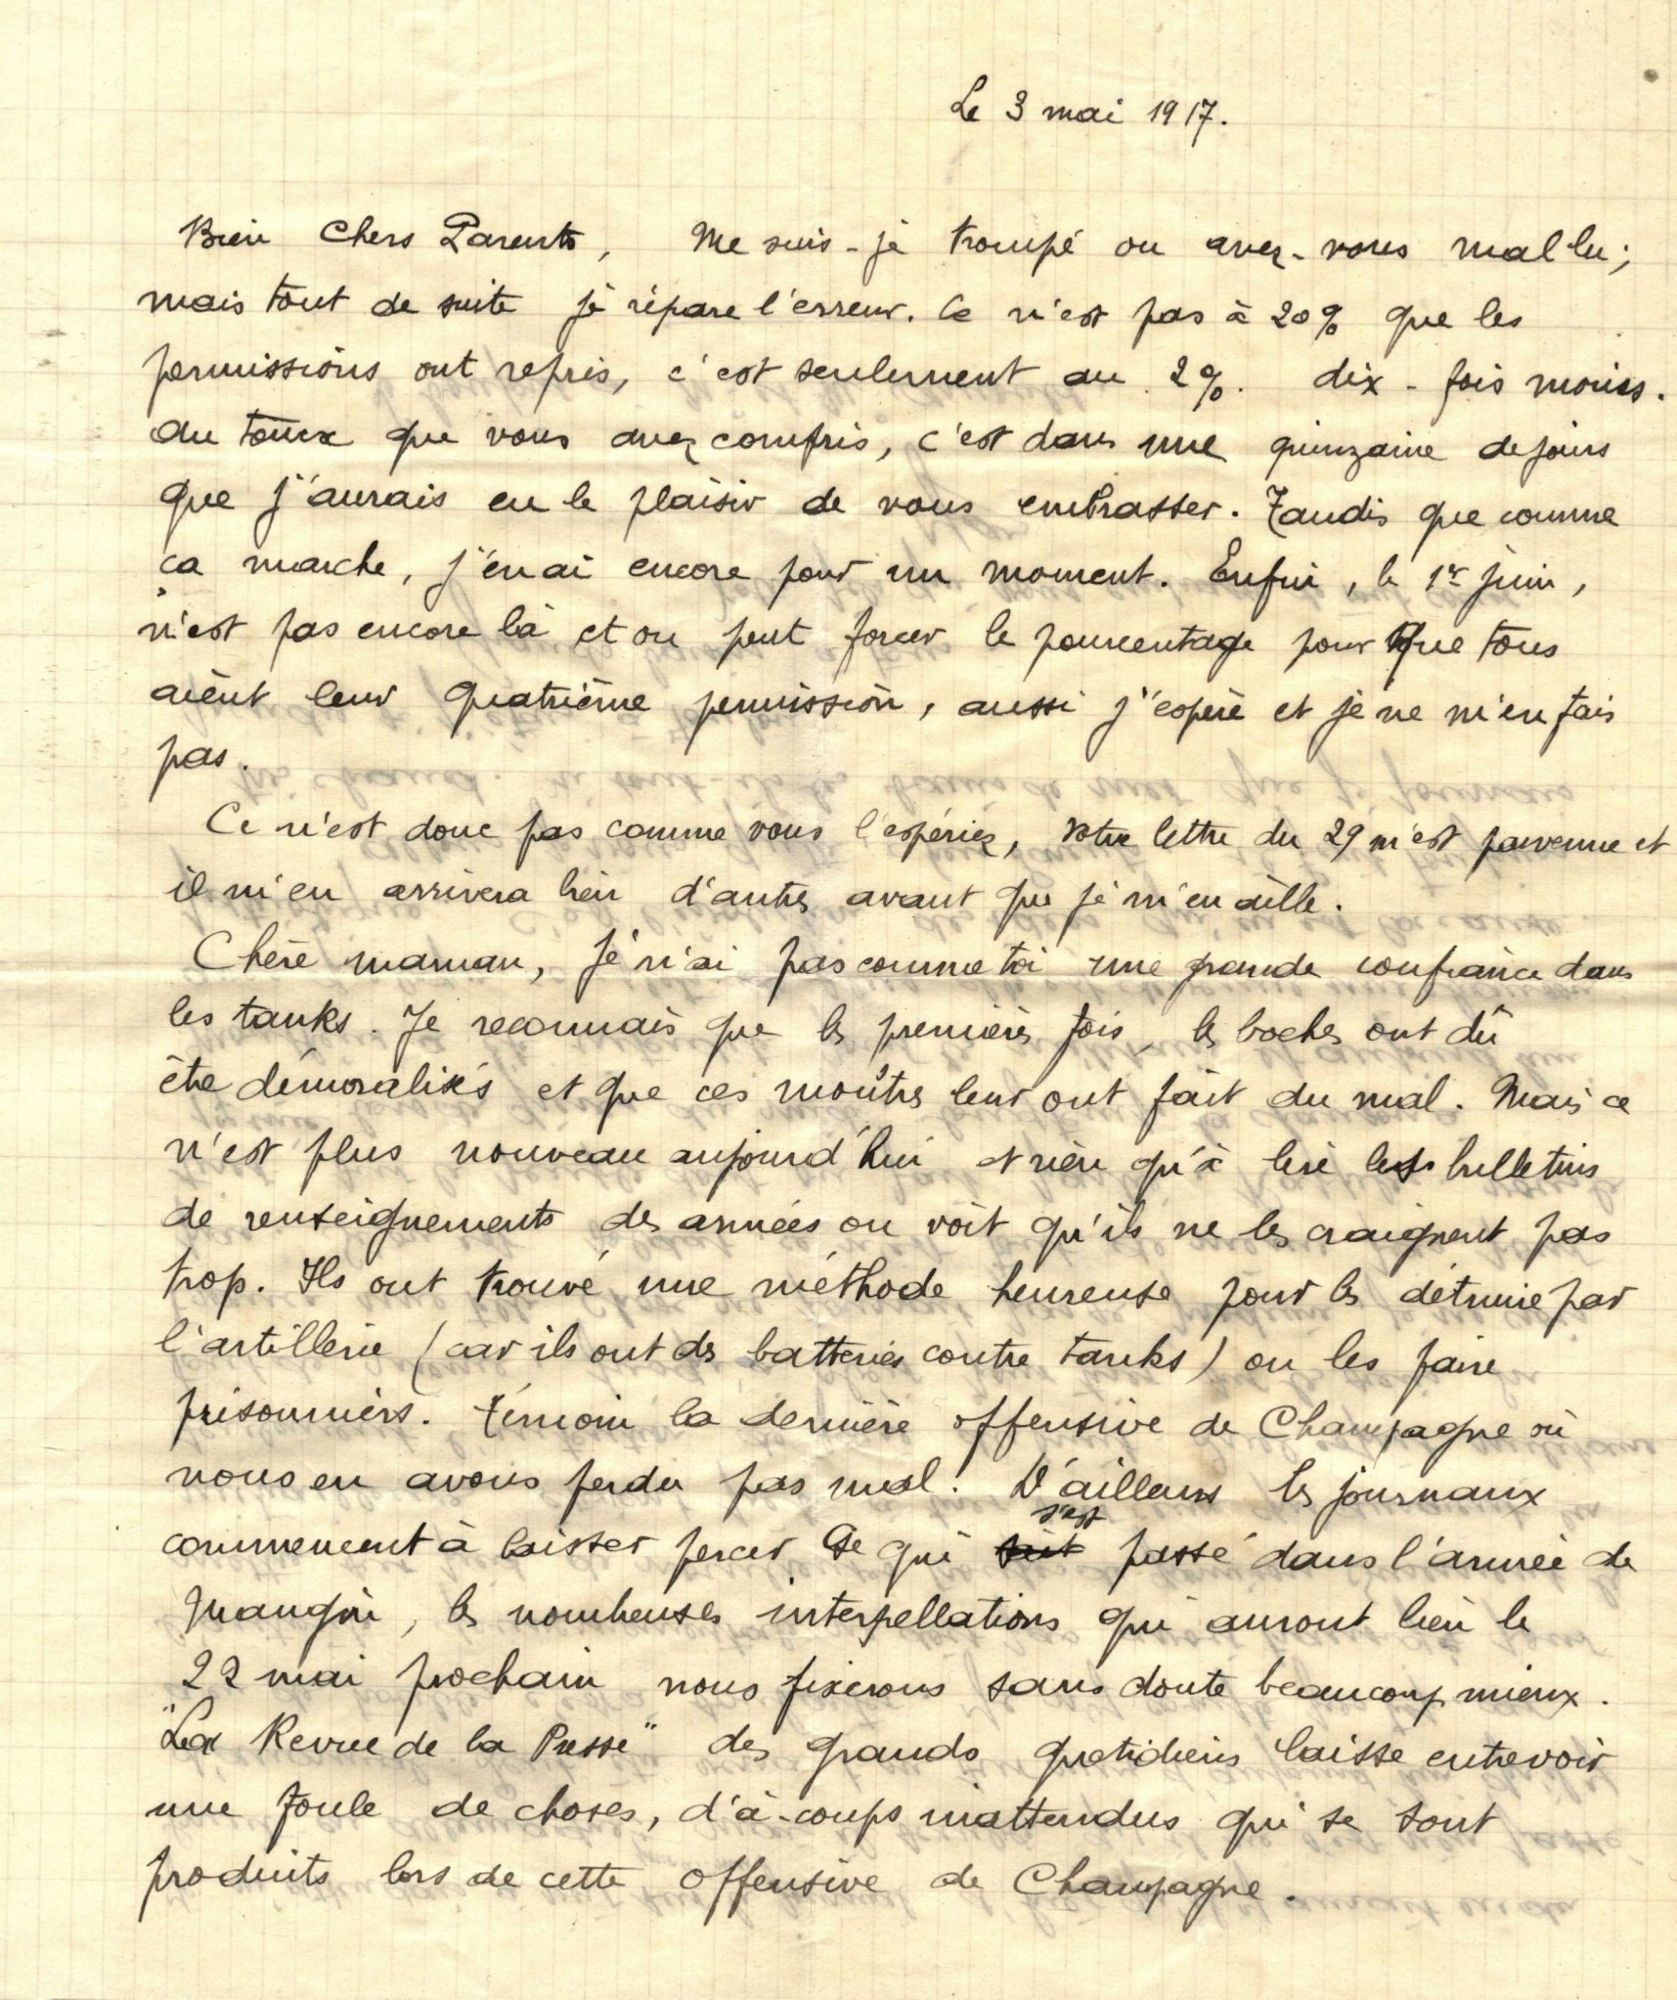 Le 3 mai 1917.
Bien Chers Parents, Me suis-je trompé ou avez-vous mal lu ;
mais tout de suite je répare l'erreur. Ce n'est pas à 20% que les
permissions ont repris, c'est seulement au 2%. dix-fois moins.
Au taux que vous avez compris, c'est dans une quinzaine de jours
que j'aurais eu le plaisir de vous embrasser. Tandis que comme
ça marche, j'en ai encore pour un moment. Enfin, le 1er juin,
n'est pas encore là et on peut forcer le pourcentage pour que tous
aient leur quatrième permission, aussi j'espère et je ne m'en fais
pas.
Ce n'est donc pas comme vous l'espériez, votre lettre du 29 m'est parvenue et
il m'en arrivera bien d'autres avant que je m'en aille.
Chère maman, je n'ai pas comme toi une grande confiance dans
les tanks. Je reconnais que les premières fois, les boches ont dû
être démoralisés et que ces monstres leur ont fait du mal. Mais ce
n'est plus nouveau aujourd'hui et rien qu'à lire les bulletins
de renseignements des armées on voit qu'ils ne les craignent pas
trop. Ils ont trouvé une méthode heureuse pour les détruire par
l'artillerie (car ils ont des batteries contre tanks) ou les faire
prisonniers. Témoin la dernière offensive de Champagne où
nous en avons perdu pas mal. D'ailleurs les journaux
commencent à laisser percer ce qui s'est passé dans l'armée de
Mangin, les nombeuses interpellations qui auront lieu le
22 mai prochain nous fixerons sans doute beaucoup mieux.
"La Revue de la Presse" des grands quotidiens laisse entrevoir
une foule de choses, d'à-coups inattendus qui se sont
produits lors de cette offensive de Champagne.